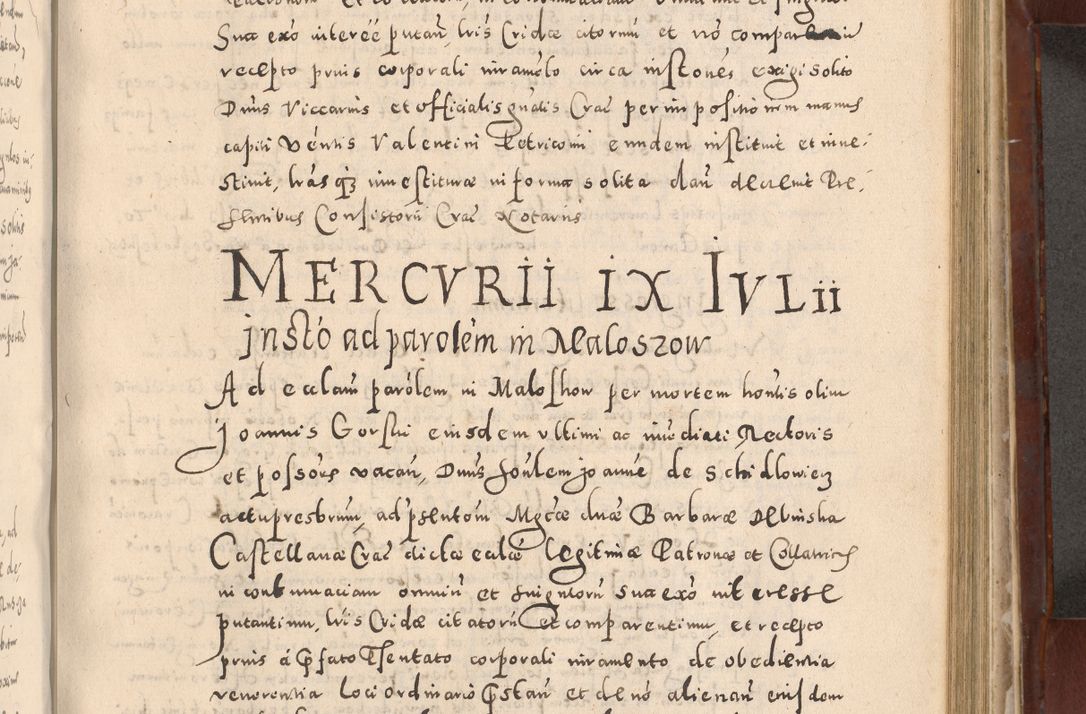 Sua exo interēē putan̄ lris Cridæ citorum et nō compar
recepto prius corporali iuramēto circa instones exigi solito
Dnus Viccarius et officialis gnalis Crac̄ per impositionem manus
capiti vēntis Valentini Petriconi eundem instituit et inve-
stivit, lrās q3 investituræ in forma solita dan̄ decrevit Præ-
sentibus Consistorii Crac̄ Notariis
MERCVRII IX IVLii
jnstō ad parolēm in Maloszow
Ad ecclam̄ parōlem in Maloshow per mortem honēstis olim
Joannis Gorski eiusdem ultimi ac imediati Rectoris
et possōris vacan̄, Dnus Joannem de Schidlowiecz
actu presbrum̄, ad psentōm Mgcæ dnæ Barbaræ Debinska
Castellanæ Crac̄ dictæ ecclæ legitimæ Patronæ et Collatricis
in contumaciam omniū et singulorū sua exō interesse
putantium, lris Cridæ citatorū et comparentium, et recepto
prius á Pfato Psentato corporali iuramento de obedientia
reverentia loci ordinario Pstan̄ et de nō alienan̄ eiusdem